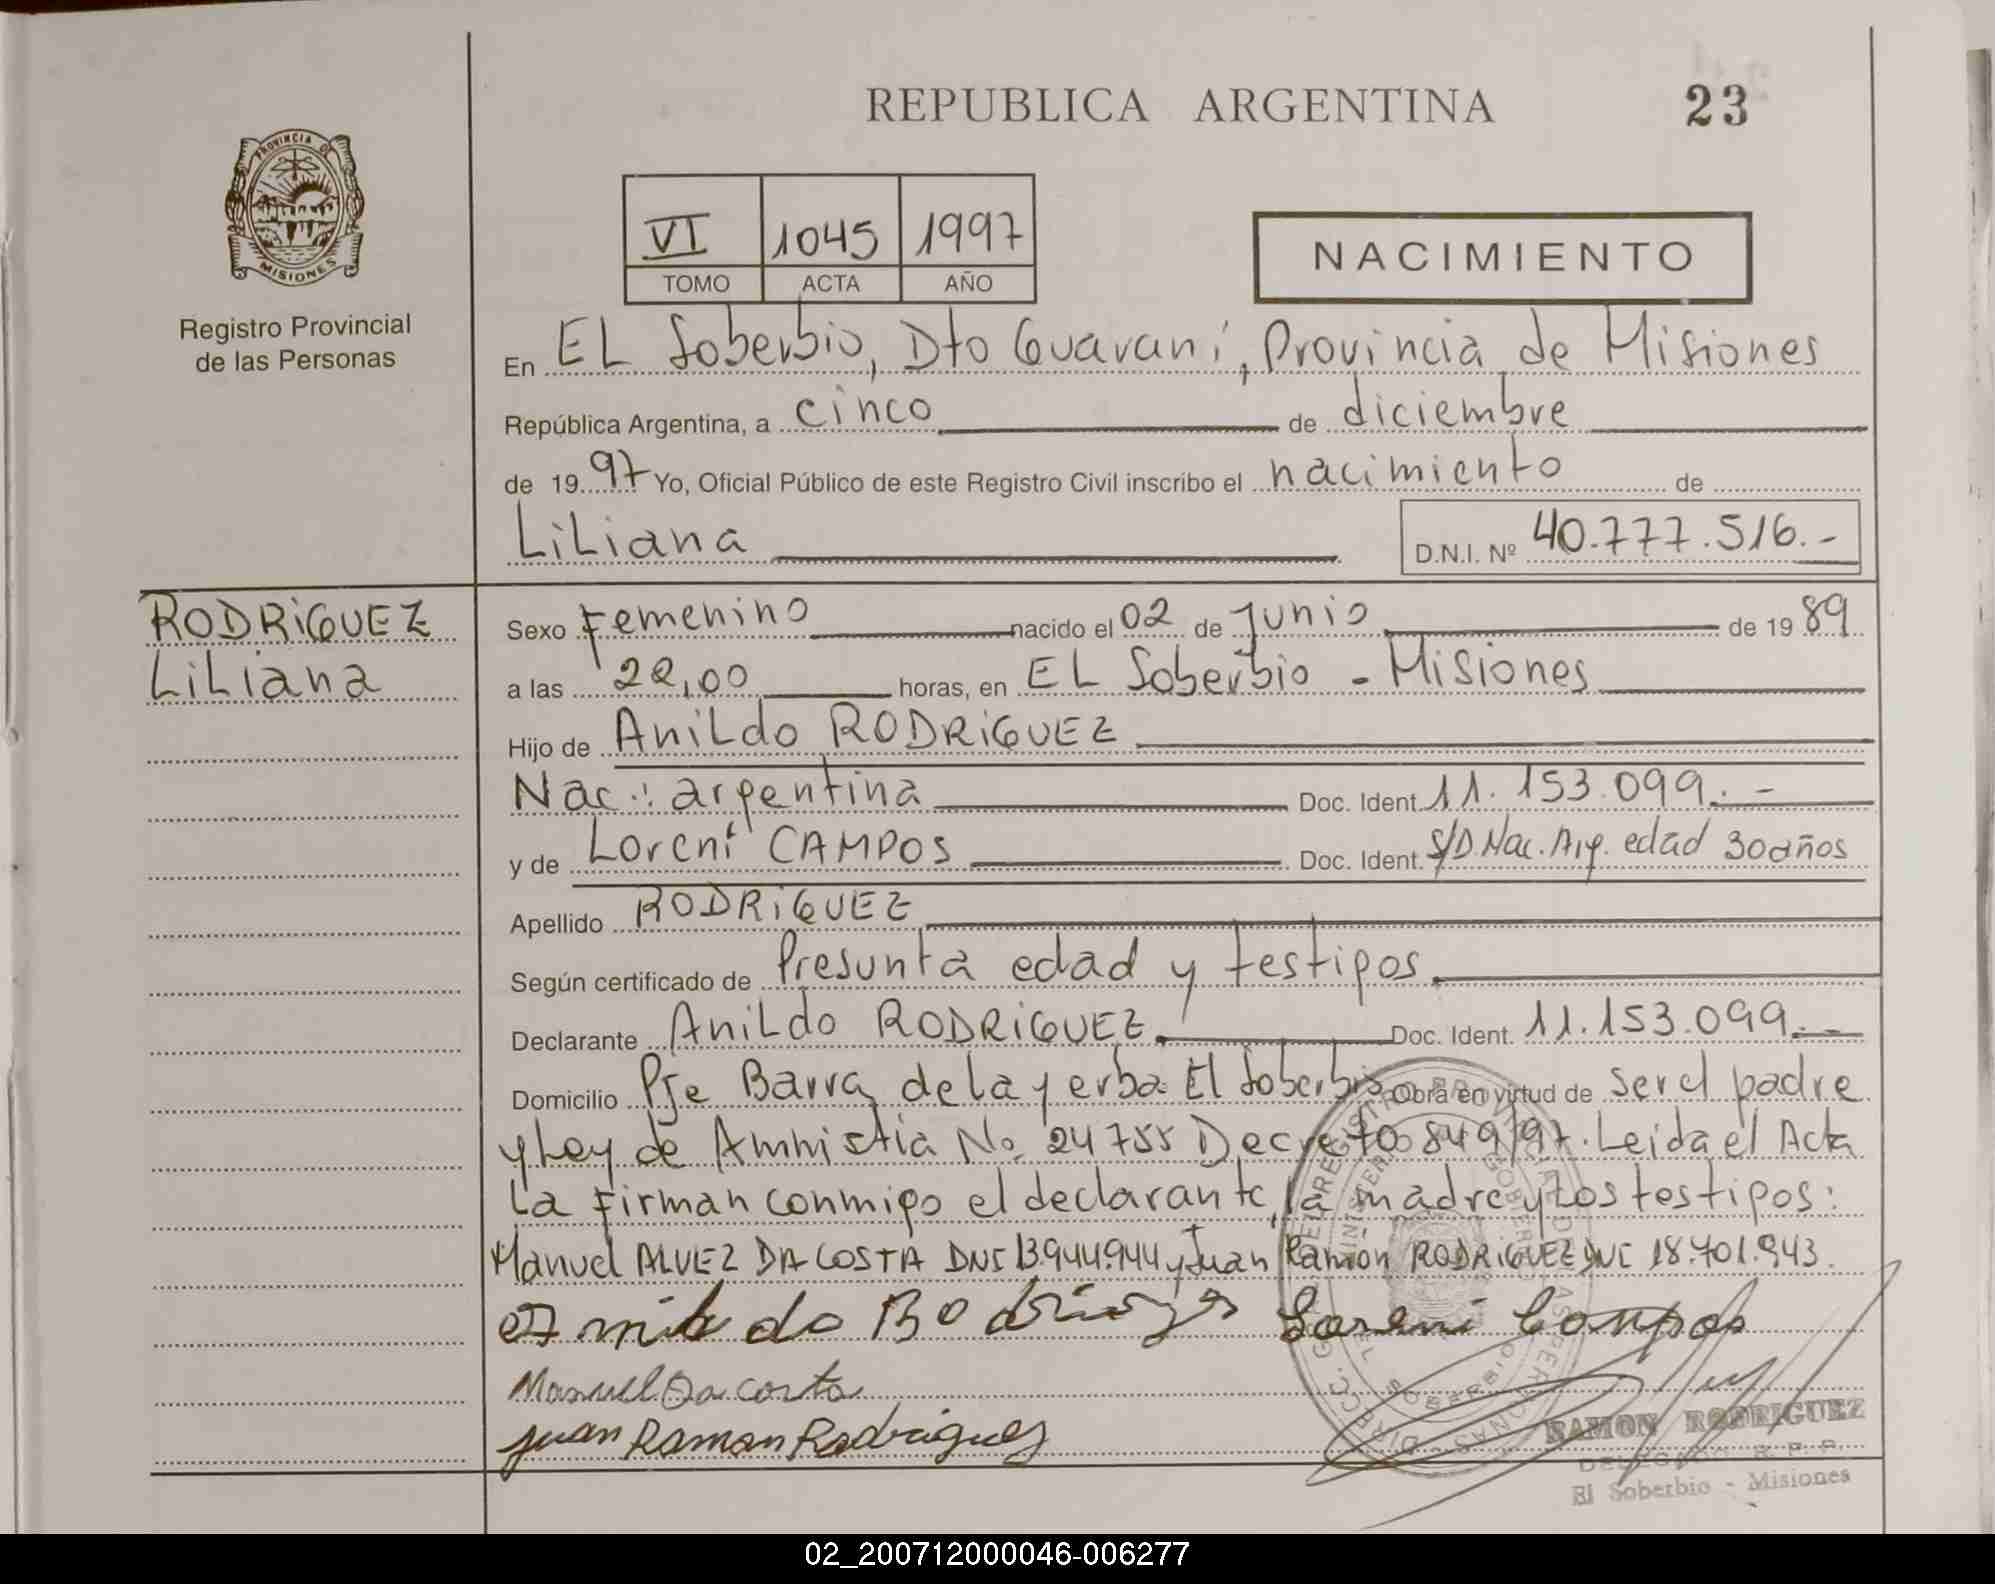 REPUBLICA ARGENTINA
23
PROVINCIA DE
MISIONES
Registro Provincial
de las Personas
VI 1045 1997
TOMO ACTA AÑO
NACIMIENTO
En EL Soberbio, Dto Guaraní, Provincia de Misiones
República Argentina, a cinco de diciembre
de 1997 Yo, Oficial Público de este Registro Civil inscribo el nacimiento de
LiLiana D.N.I. Nº 40.777.516.-
RODRiGUEZ
LiLiana
Sexo Femenino nacido el 02 de junio de 1989
a las 22,00 horas, en EL Soberbio - Misiones
Hijo de AniLdo RODRiGUEZ
Nac.: argentina Doc. Ident. 11.153.099.-
y de Lorení CAMPOS Doc. Ident. S/D Nac. Arg. edad 30 años
Apellido RODRiGUEZ
Según certificado de Presunta edad y testigos.
Declarante AniLdo RODRiGUEZ. Doc. Ident. 11.153.099.-
Domicilio Pje Barra de la yerba El Soberbio Obra en virtud de ser el padre
y Ley de Amnistia No. 24755 Decreto 849/97. Leida el Acta
La Firman conmigo el declarante, la madre y Los testigos:
Manuel ALVEZ DA COSTA DNI 13.944.944 y Juan Ramón RODRiGUEZ DNI 18.701.943.
Loreni Campos
Manuel Da Costa
Juan Ramon Rodriguez
RAMON RODRIGUEZ
DELEGADO R. P. P.
El Soberbio - Misiones
02_200712000046-006277